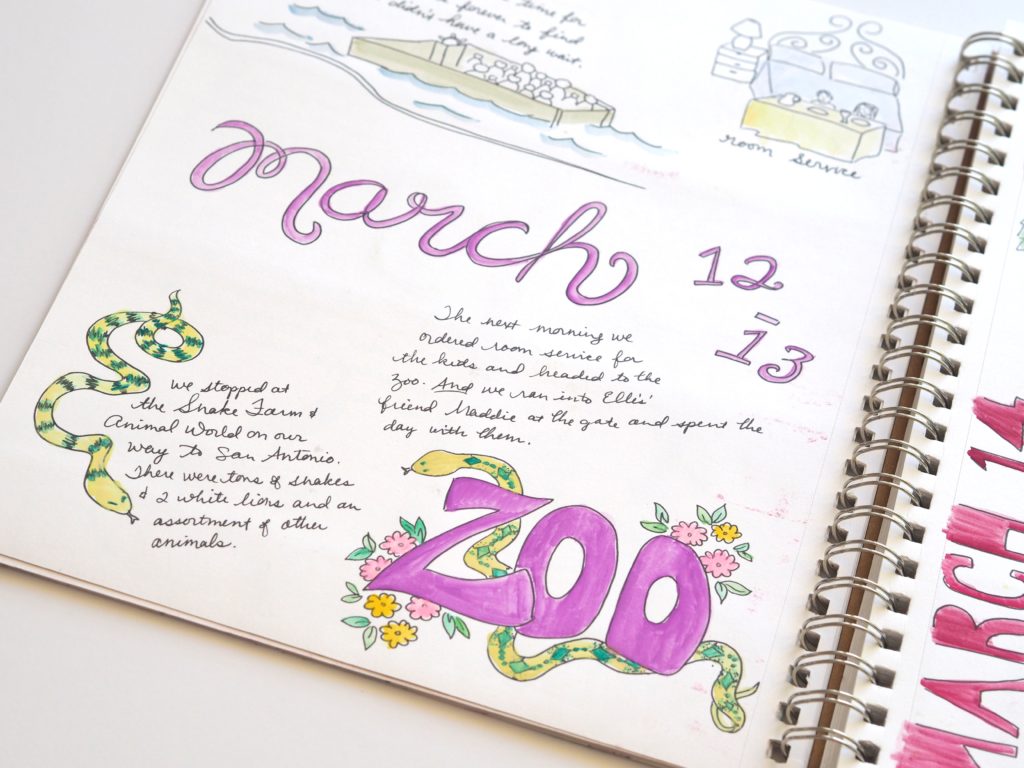 time for
forever to find
didn't have a long wait.
room service
March
12
-
13
we stopped at
the Snake Farm &
Animal World on our
way to San Antonio.
There were tons of snakes
& 2 white lions and an
assortment of other
animals.
The next morning we
ordered room service for
the kids and headed to the
zoo. And we ran into Ellis'
friend Maddie at the gate and spent the
day with them.
ZOO
MARCH 14